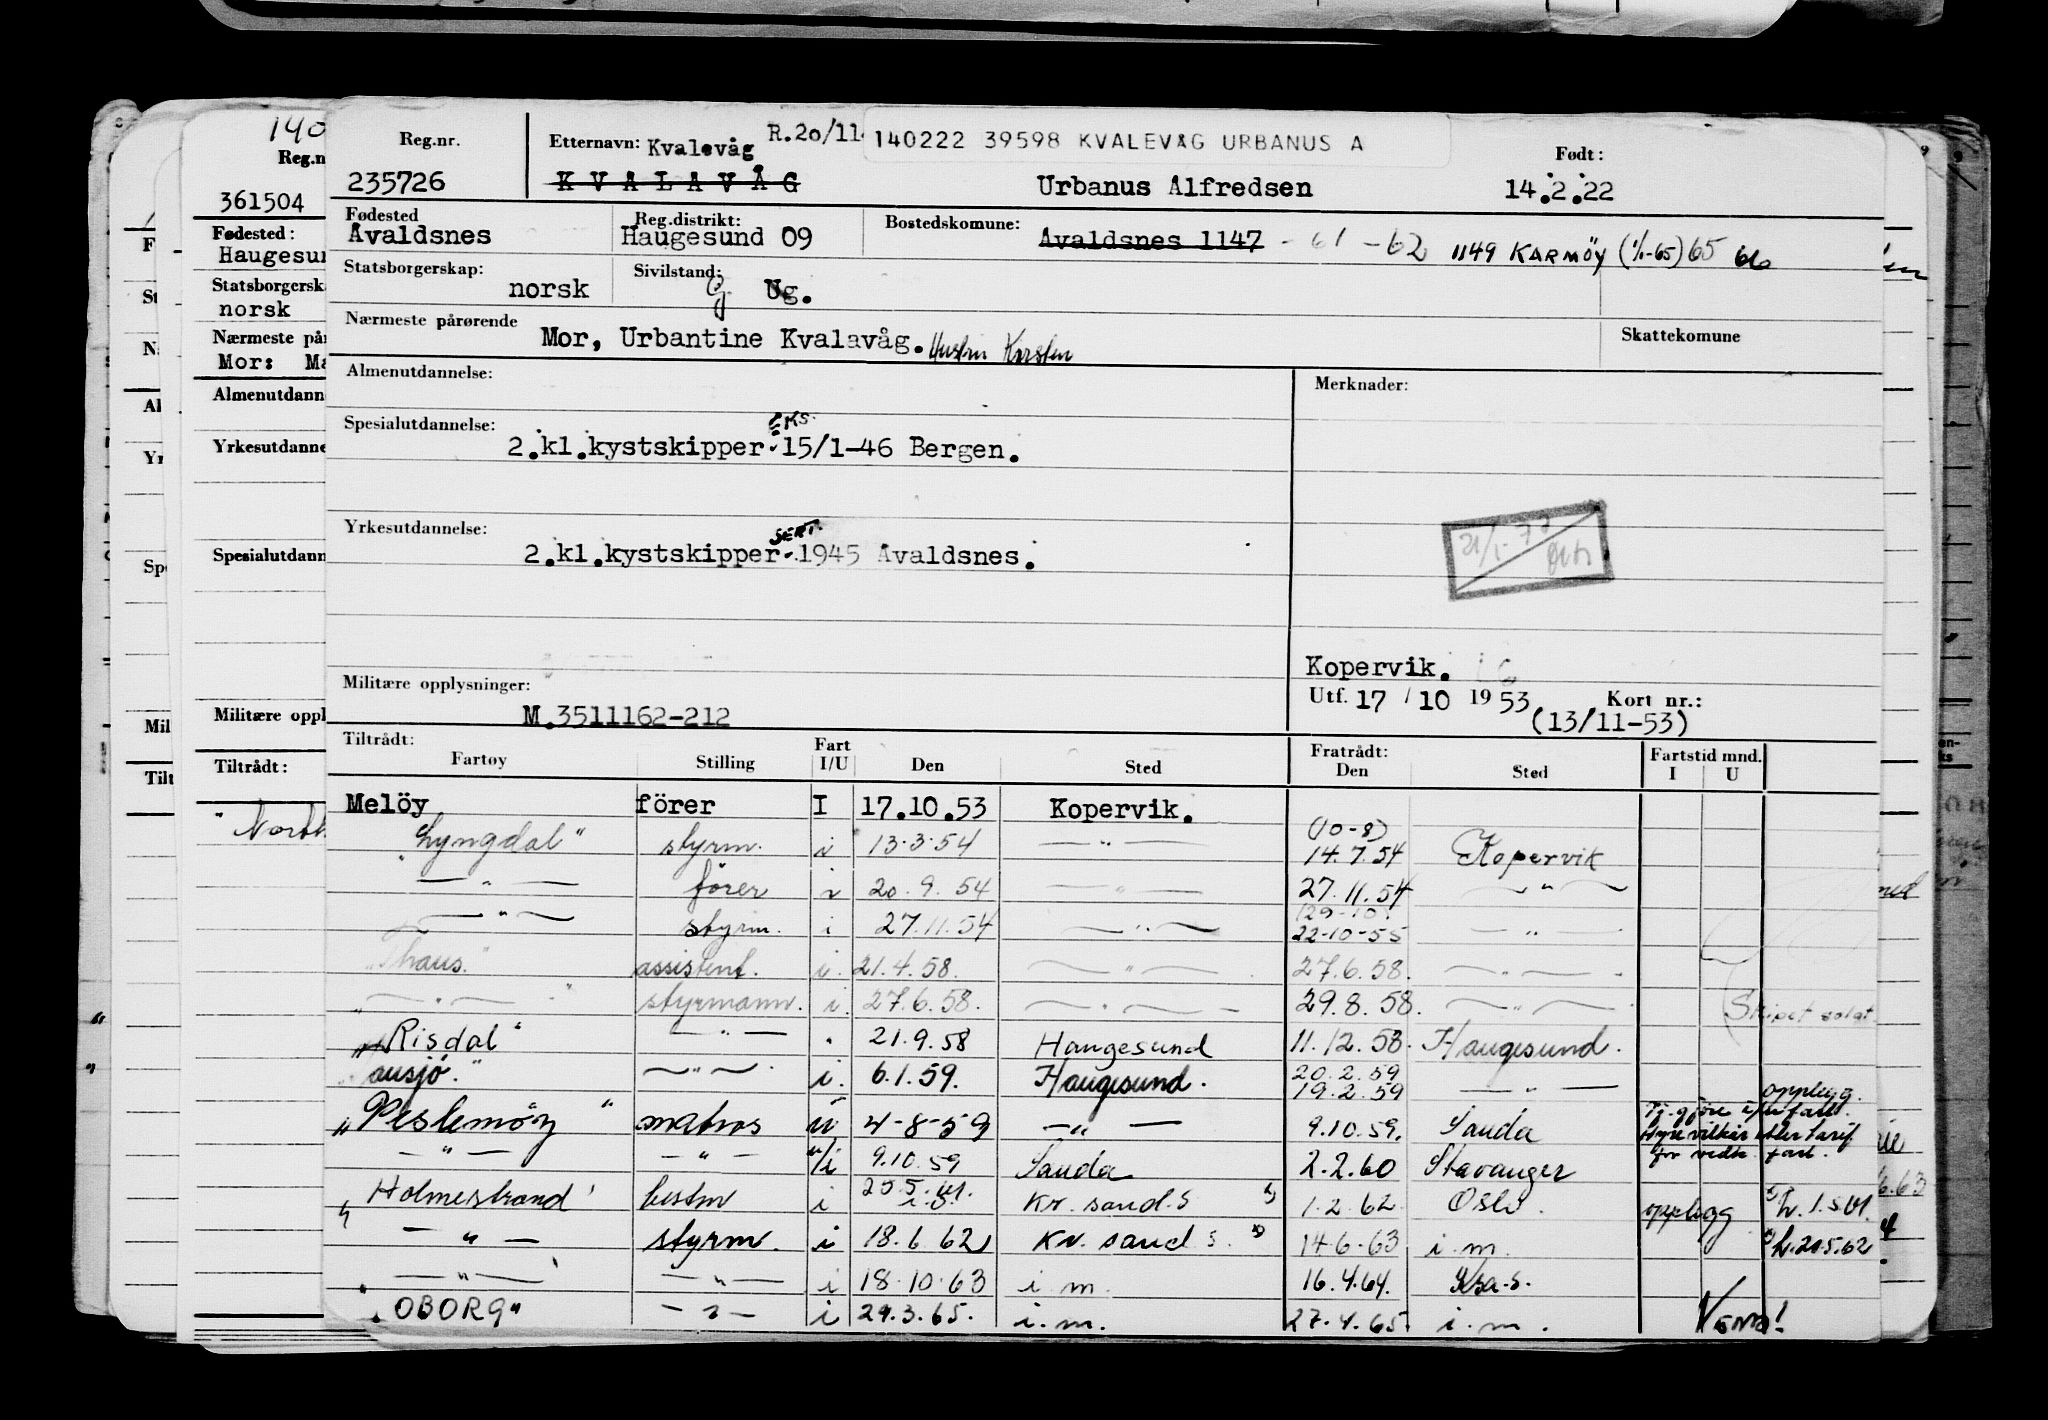 140
Reg.n
361504
Fødested:
Haugesun
Statsborgerska
norsk
Nærmeste pår
Mor: Ma
Almenutdann
Yrkesutdanne
Spesialutdann
Militære oppl
Tiltrådt:
Reg.nr. Etternavn: Kvalevåg R.20/11 140222 39598 KVALEVÅG URBANUS A Født:
235726 KVALAVÅG Urbanus Alfredsen 14.2.22
Fødested Reg.distrikt: Bostedskomune:
Avaldsnes Haugesund 09 Avaldsnes 1147 - 61 - 62 1149 KARMÖY (1/1-65) 65 66
Statsborgerskap: Sivilstand:
norsk G Ug.
Nærmeste pårørende Skattekomune
Mor, Urbantine Kvalavåg. Hustru Kirsten
Almenutdannelse: Merknader:
Spesialutdannelse: EKS.
2.kl.kystskipper 15/1-46 Bergen.
Yrkesutdannelse: SERT.
2.kl.kystskipper 1945 Avaldsnes.
Kopervik.
Militære opplysninger: Utf. 17 / 10 19 53 Kort nr.:
M.3511162-212 (13/11-53)
Tiltrådt: Fratrådt: Fartstid mnd.
Fartøy Stilling Fart I/U Den Sted Den Sted I U
Melöy förer I 17.10.53 Kopervik.
(10-8)
"Lyngdal" styrm. i 13.3.54 — " — 14.7.54 Kopervik
— " — förer i 20.9.54 — " — 27.11.54 — " —
— " — styrm. i 27.11.54 — " — 22-10-55 — " —
"Thaus" assistent. i. 21.4.58. — " — 27.6.58. — " —
— " — styrmann. i. 27.6.58. — " — 29.8.58. — " — Skipet solgt.
"Risdal" — " — " 21.9.58 Haugesund 11.12.58. Haugesund.
ausjö." — " — i. 6.1.59. Haugesund. 20.2.59 19.2.59 — " — opplegg.
matros u 4-8-59 — " — 9.10.59. Sauda
— " — — " — u/i 9.10.59 Sauda 2.2.60 Stavanger
"Holmestrand" bestm i Kr. sand.S 1.2.62. Oslo. opplegg
— " — styrm. i 18.6.62 Kr. sand S. 14-6-63 i.m. h.20.5.62
— " — — " — i 18-10-63 i.m. 16.4.64.
"OBORG" — " — i 29.3.65. i.m. 27.4.65. i.m. Vend!